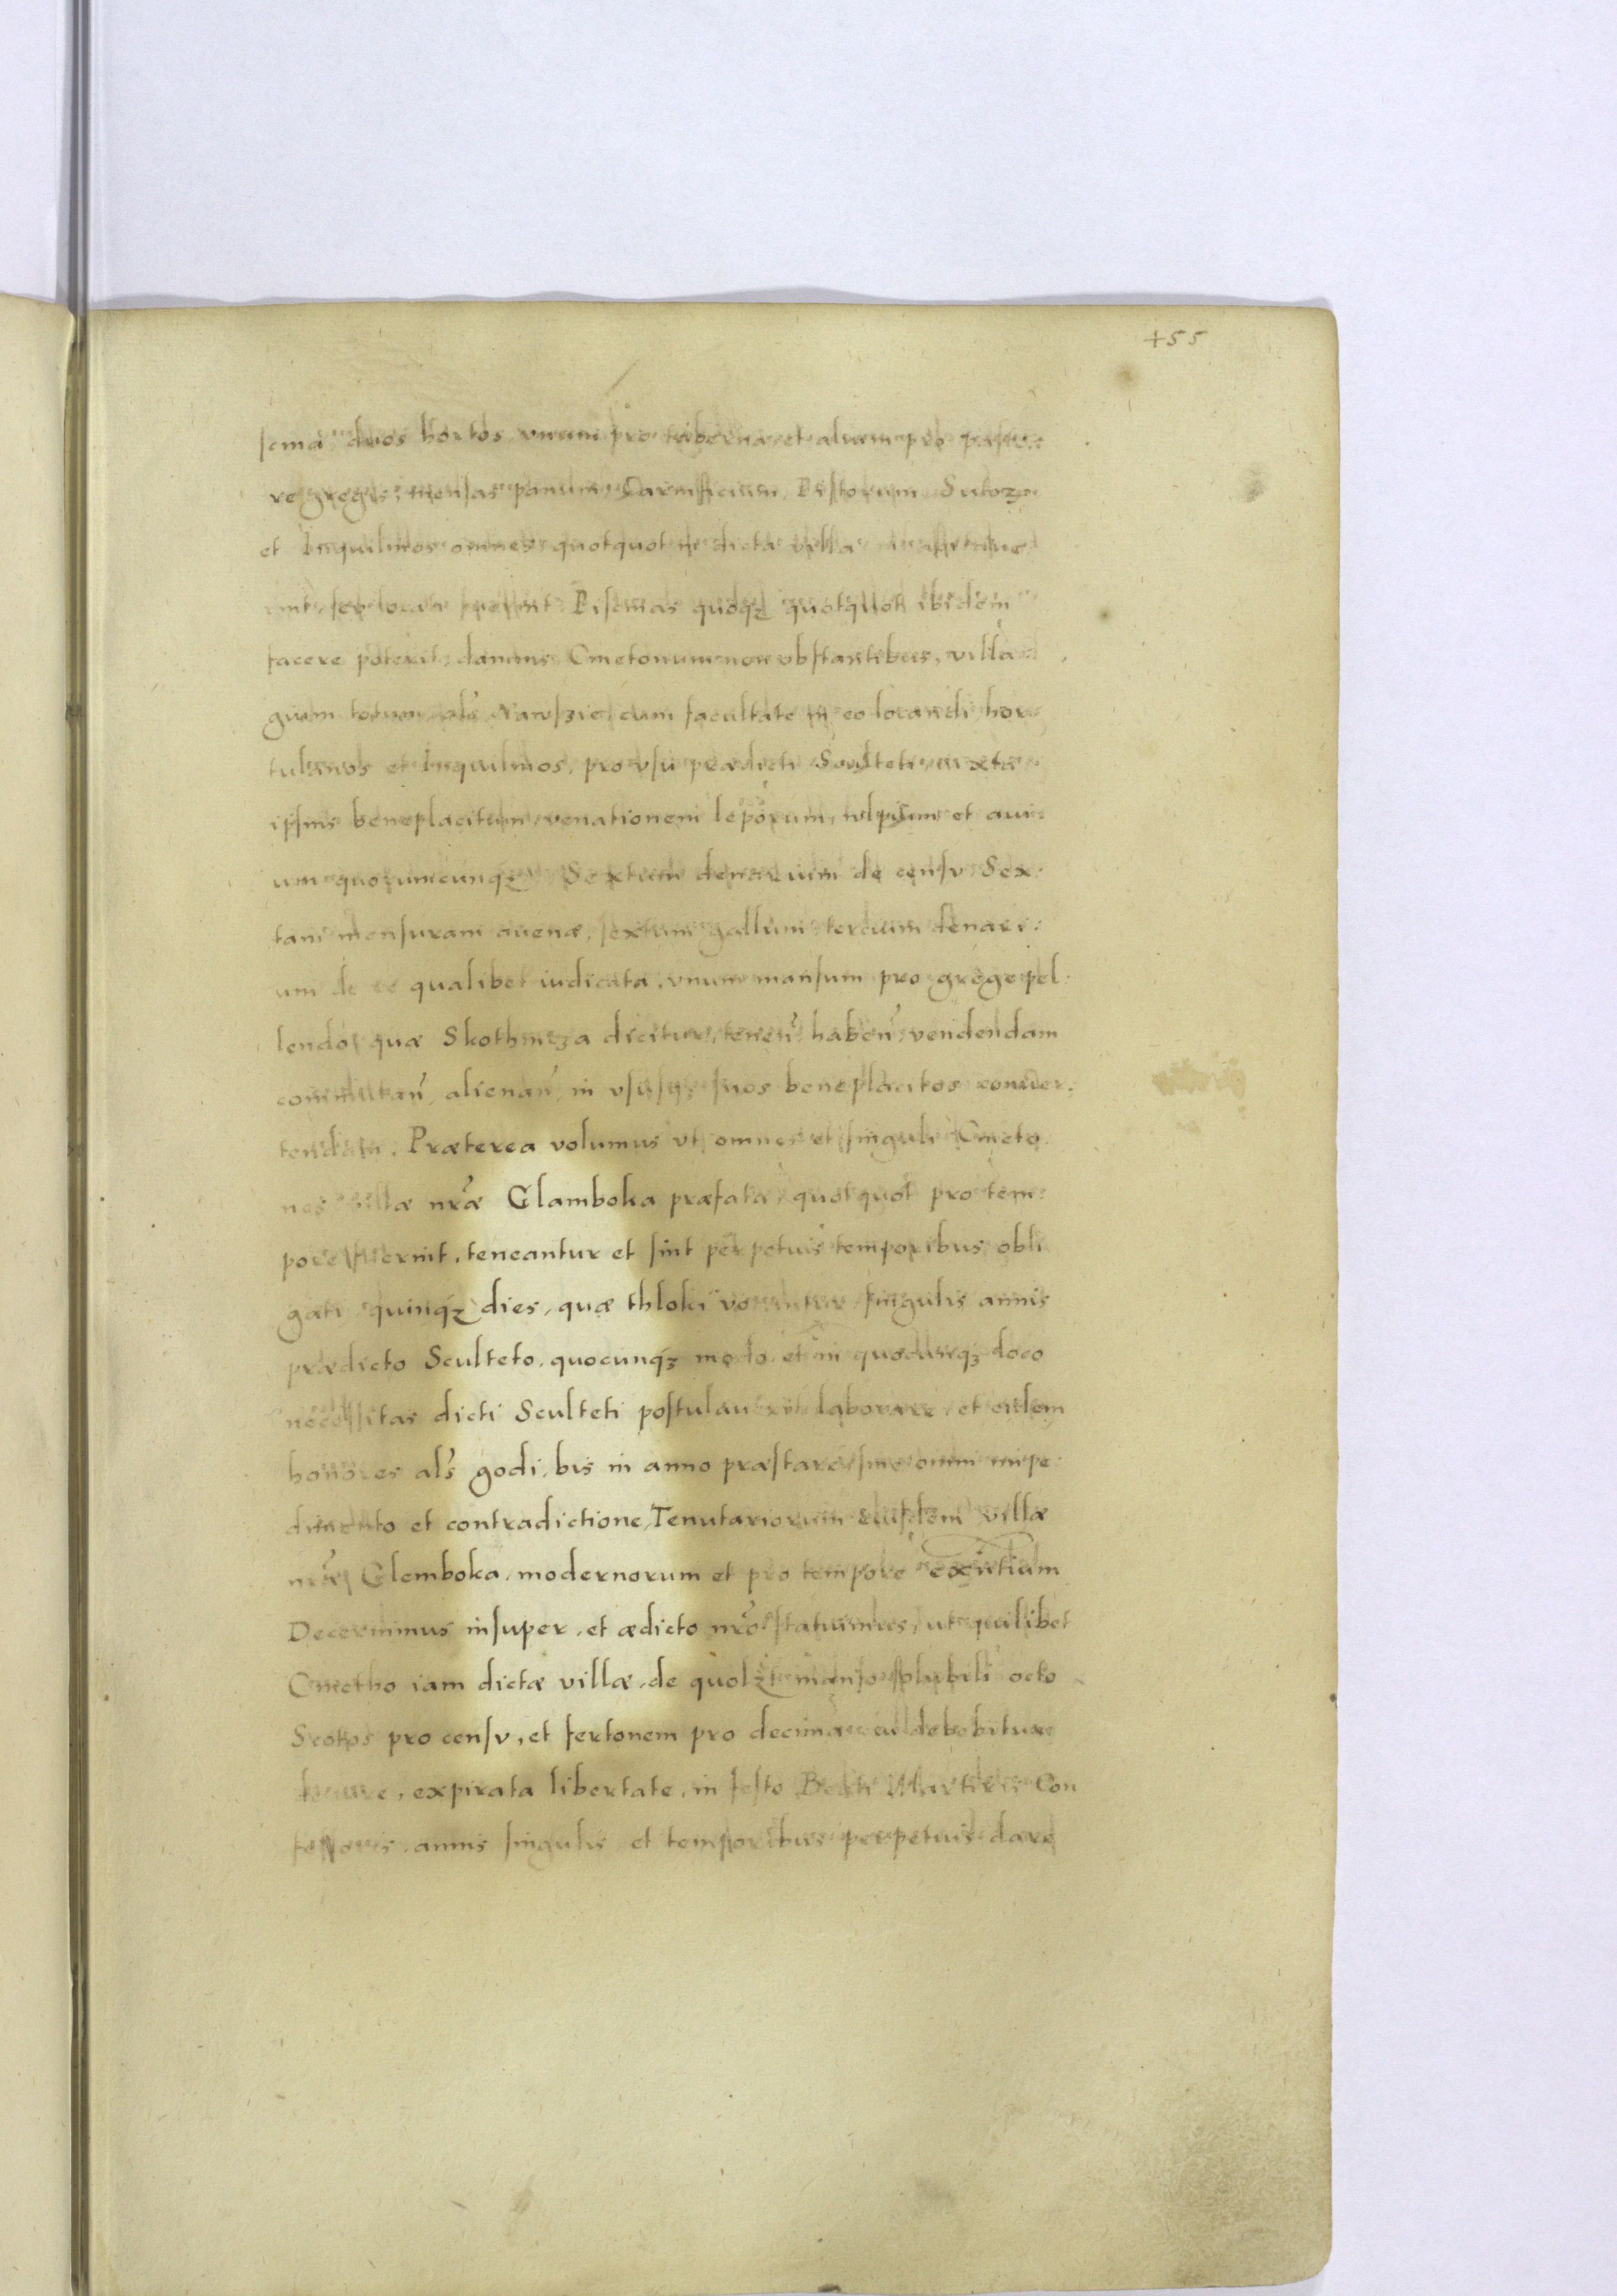 455
duos hortos vnum pro taberna et alium pro
re gregis, mensas panum, Carnificium, Pistorum Sutorꝝ
et Inquilinos omnes quotquot in dicta villa
Piscinas quoqꝫ quotquot ibidem
facere poterit, damnis Cmetonum non obstantibus, villa
als Nawszie cum facultate in eo locandi hor
tulanos et Inquilinos, pro vsu prædicti Sculteti iuxta
ipsius beneplacitum, venationem leporum, vulpium et aui:
um quorumcunqꝫ Sextum denarium de censu Sex:
tam mensuram auenæ, sextum gallum tercium denari:
um de re qualibet iudicata, vnum mansum pro grege pel
lendo, quæ Skothnicza dicitur, tenen̄ haben̄ vendendam
commutan̄, alienan̄, in vsusqꝫ suos beneplacitos conuer:
tendam. Præterea volumus vt omnes et singuli Cmeto
nes villæ nr̄æ Glamboka præfatæ, quotquot pro tem:
pore fuerint, teneantur et sint perpetuis temporibus obli
gati quinqꝫ dies, quæ thloki vocantur singulis annis
prædicto Sculteto, quocunqꝫ modo et in quocunqꝫ loco
necessitas dicti Sculteti postulauerit laborare, et eidem
honores als godi, bis in anno præstare sine omni impe
dimento et contradictione, Tenutariorum eiusdem villæ
nr̄æ Glemboka, modernorum et pro tempore existētium
Decernimus insuper, et ædicto nr̄o statuimus, ut quilibet
Cmetho iam dictæ villæ, de quolꝫt manso octo
Scotos pro censu, et fertonem pro decima cui debebitur
expirata libertate, in festo Beati Martini Con
fessoris, annis singulis et temporibus perpetuis dare